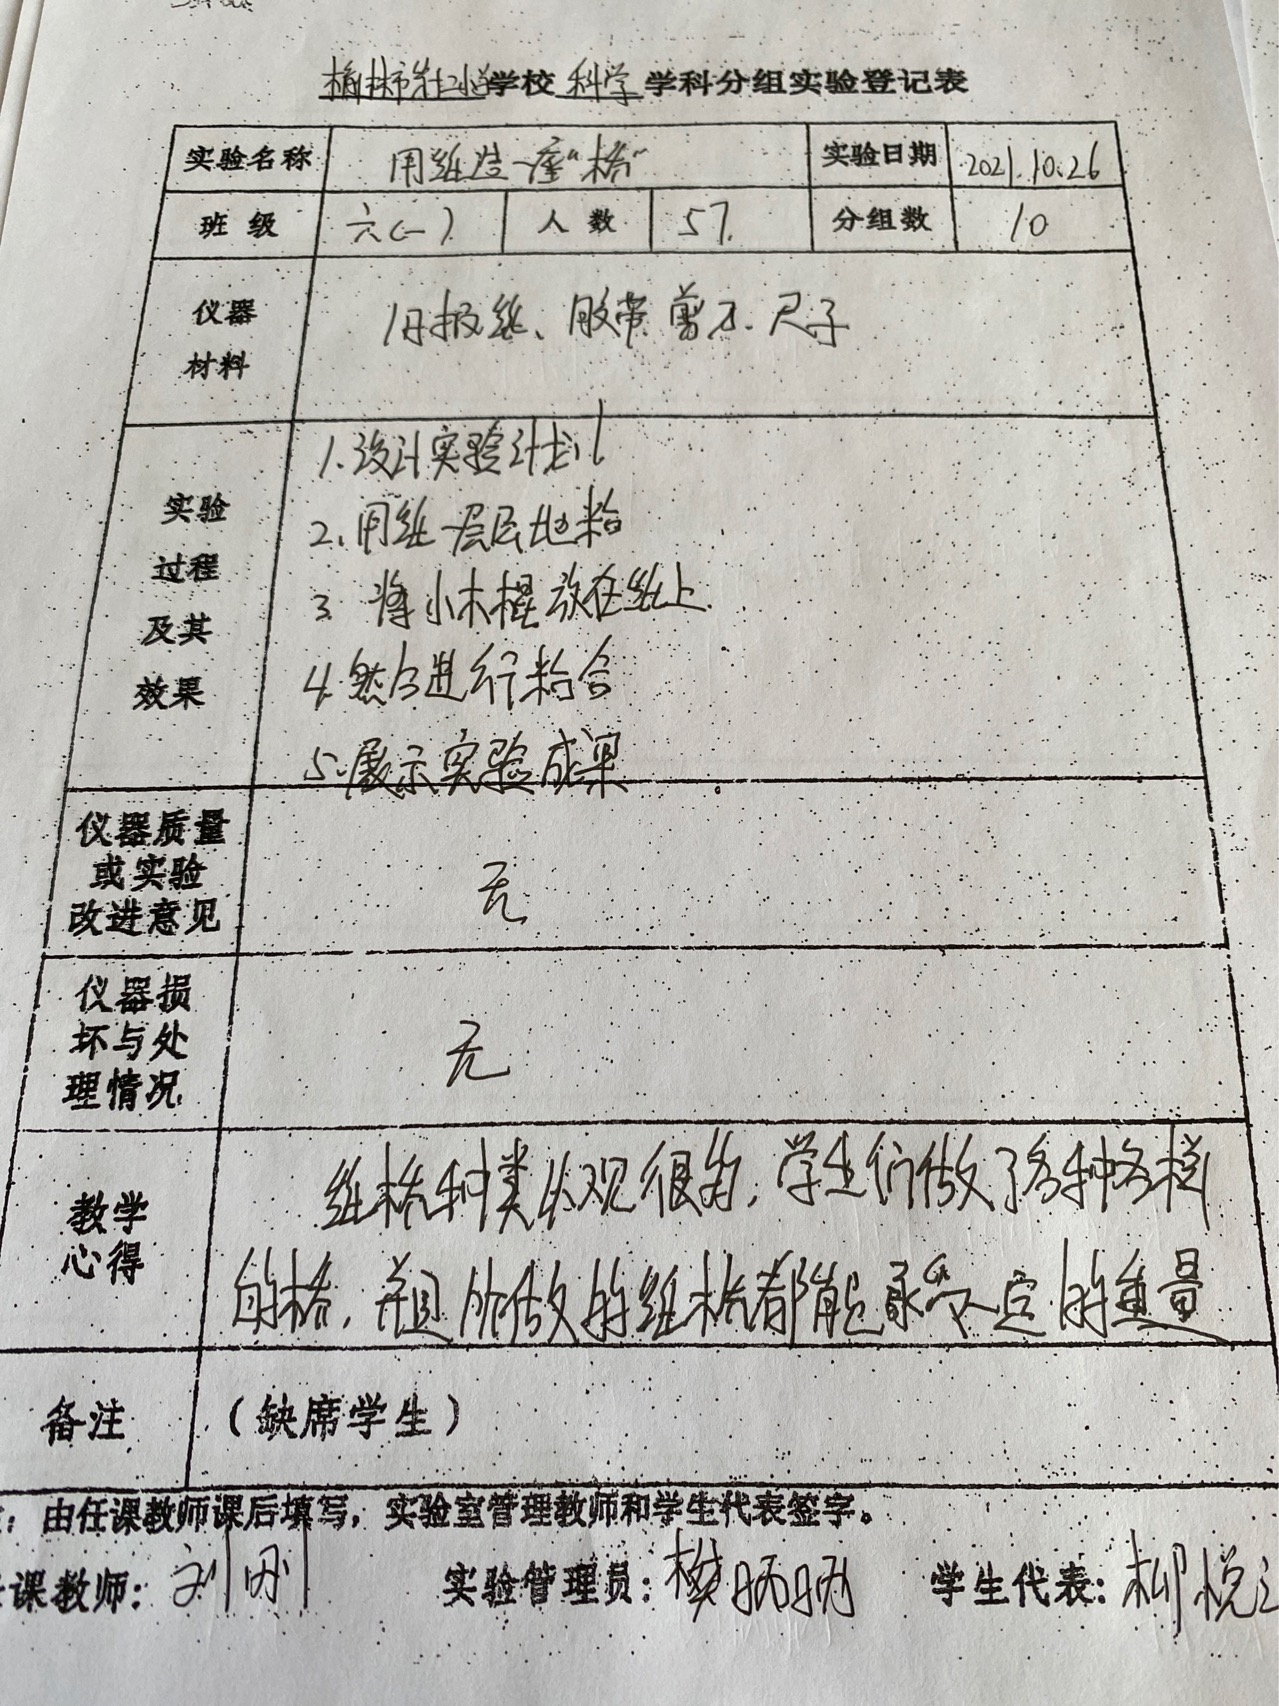 学校 科学 学科分组实验登记表
实验名称 用纸造一座“桥” 实验日期 2021.10.26
班级 六(一) 人数 57. 分组数 10
仪器 旧报纸、胶带 剪刀、尺子
材料
1.设计实验计划
实验 2.用纸一层层地粘
过程 3. 将小木棍放在纸上.
及其 4.然后进行粘合
效果 5.展示实验成果
仪器质量
或实验 无
改进意见
仪器损
坏与处 无
理情况
教学 纸桥种类 观很多,学生们做了各种各样
心得 的桥,并且所做的纸桥都能承受一定的重量
备注 (缺席学生)
:由任课教师课后填写,实验室管理教师和学生代表签字。
课教师: 刘刚 实验管理员: 樊炳炳 学生代表: 柳悦